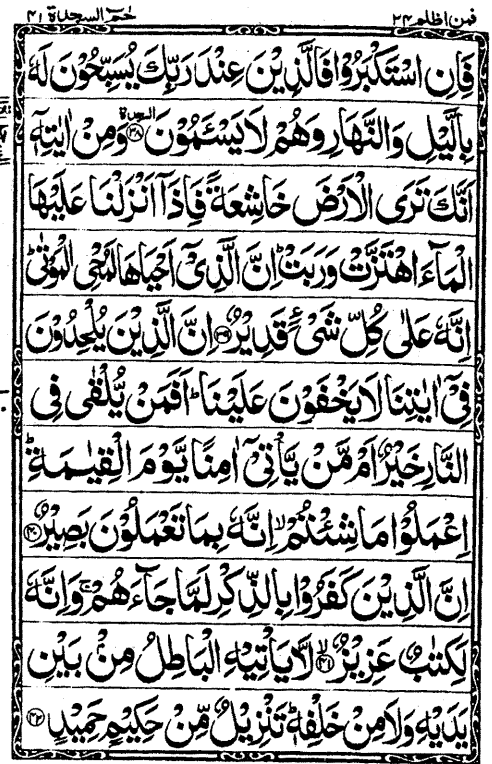 فمن اظلم ٢٤
حٰم السجدة ٤١
فَاِنِ اسْتَكْبَرُوْا فَالَّذِيْنَ عِنْدَ رَبِّكَ يُسَبِّحُوْنَ لَهٗ
بِالَّيْلِ وَالنَّهَارِ وَهُمْ لَا يَسْـَٔمُوْنَ السجدة ﴿٣٨﴾ وَمِنْ اٰيٰتِهٖٓ
اَنَّكَ تَرَى الْاَرْضَ خَاشِعَةً فَاِذَآ اَنْزَلْنَا عَلَيْهَا
الْمَآءَ اهْتَزَّتْ وَرَبَتْ ؕ اِنَّ الَّذِيْٓ اَحْيَاهَا لَمُحْيِ الْمَوْتٰى ؕ
اِنَّهٗ عَلٰى كُلِّ شَيْءٍ قَدِيْرٌ ﴿٣٩﴾ اِنَّ الَّذِيْنَ يُلْحِدُوْنَ
فِيْٓ اٰيٰتِنَا لَا يَخْفَوْنَ عَلَيْنَا ؕ اَفَمَنْ يُّلْقٰى فِي
النَّارِ خَيْرٌ اَمْ مَّنْ يَّاْتِيْٓ اٰمِنًا يَّوْمَ الْقِيٰمَةِ ؕ
اِعْمَلُوْا مَا شِئْتُمْ ۙ اِنَّهٗ بِمَا تَعْمَلُوْنَ بَصِيْرٌ ﴿٤٠﴾
اِنَّ الَّذِيْنَ كَفَرُوْا بِالذِّكْرِ لَمَّا جَآءَهُمْ ۚ وَاِنَّهٗ
لَكِتٰبٌ عَزِيْزٌ ۙ﴿٤١﴾ لَّا يَاْتِيْهِ الْبَاطِلُ مِنْۢ بَيْنِ
يَدَيْهِ وَلَا مِنْ خَلْفِهٖ ؕ تَنْزِيْلٌ مِّنْ حَكِيْمٍ حَمِيْدٍ ﴿٤٢﴾